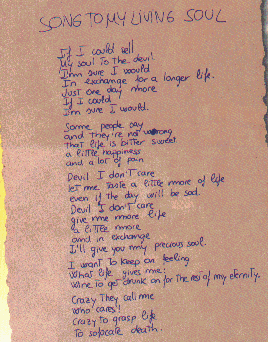 SONG TO MY LIVING SOUL
If I could sell
My soul to the devil
I'm sure I would
In exchange for a longer life.
Just one day more
If I could
I'm sure I would.
Some people say
and they're not wrong
that life is bitter sweet
a little happiness
and a lot of pain
Devil I don't care
let me taste a little more of life
even if the day will be sad.
Devil I don't care
give me more life
a little more
and in exchange
I'll give you my precious soul.
I want to keep on feeling
what life gives me!
Wine to get drunk on for the rest of my eternity.
Crazy They call me
who cares!
Crazy to grasp life
To sofocate death.